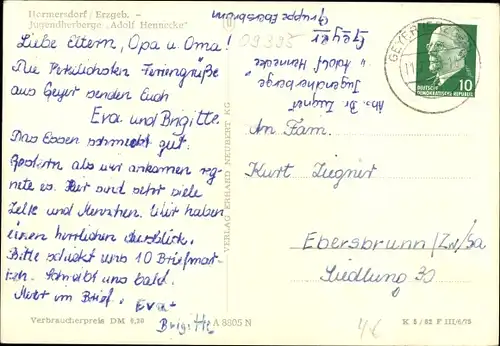 Hermersdorf / Erzgeb. –
Jugendherberge „Adolf Hennecke"
Liebe Eltern, Opa u. Oma!
Die herzlichsten Feriengrüße
aus Geyer senden Euch
Eva und Brigitte.
Das Essen schmeckt gut.
Gestern als wir ankamen reg-
nete es. Hier sind sehr viele
Zelte und Menschen. Wir haben
einen herrlichen Ausblick.
Bitte schickt uns 10 Briefmar-
ken. Schreibt uns bald.
Mehr im Brief. Eva
Brigitte
Verbraucherpreis DM 0,20
A 8805 N
VERLAG ERHARD NEUBERT KG
Abs. Br. Ziegner
Jugendherberge
„Adolf Hennecke"
Geyer
Gruppe Ebersbrunn
09395
GEYER
DEUTSCHE
DEMOKRATISCHE REPUBLIK
10
An Fam.
Kurt Ziegner
Ebersbrunn/Zw/Sa
Siedlung 30
K 5/62 F III/6/75